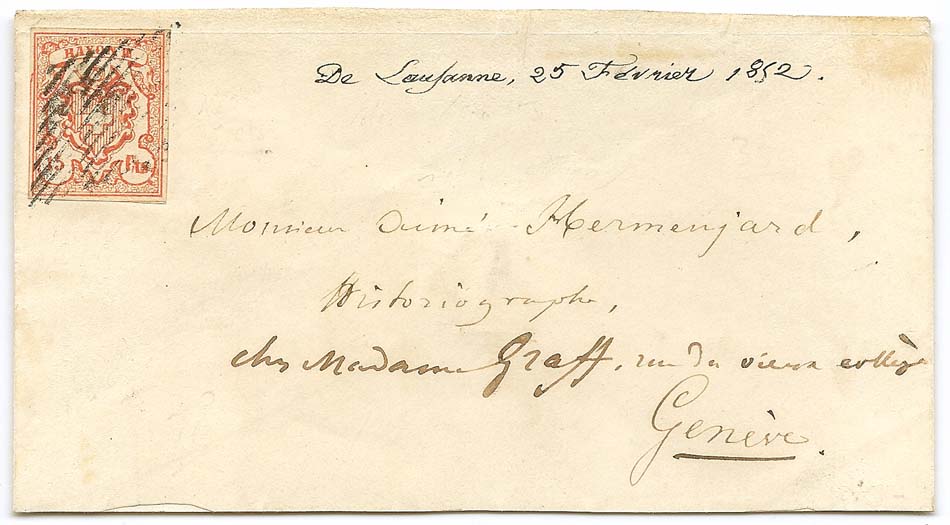 RAYON III
De Lausanne, 25 Février 1852.
15 Rp.
Monsieur Aimé Hermenjard,
Historiographe,
chez Madame Graff, rue du vieux collège
Genève.